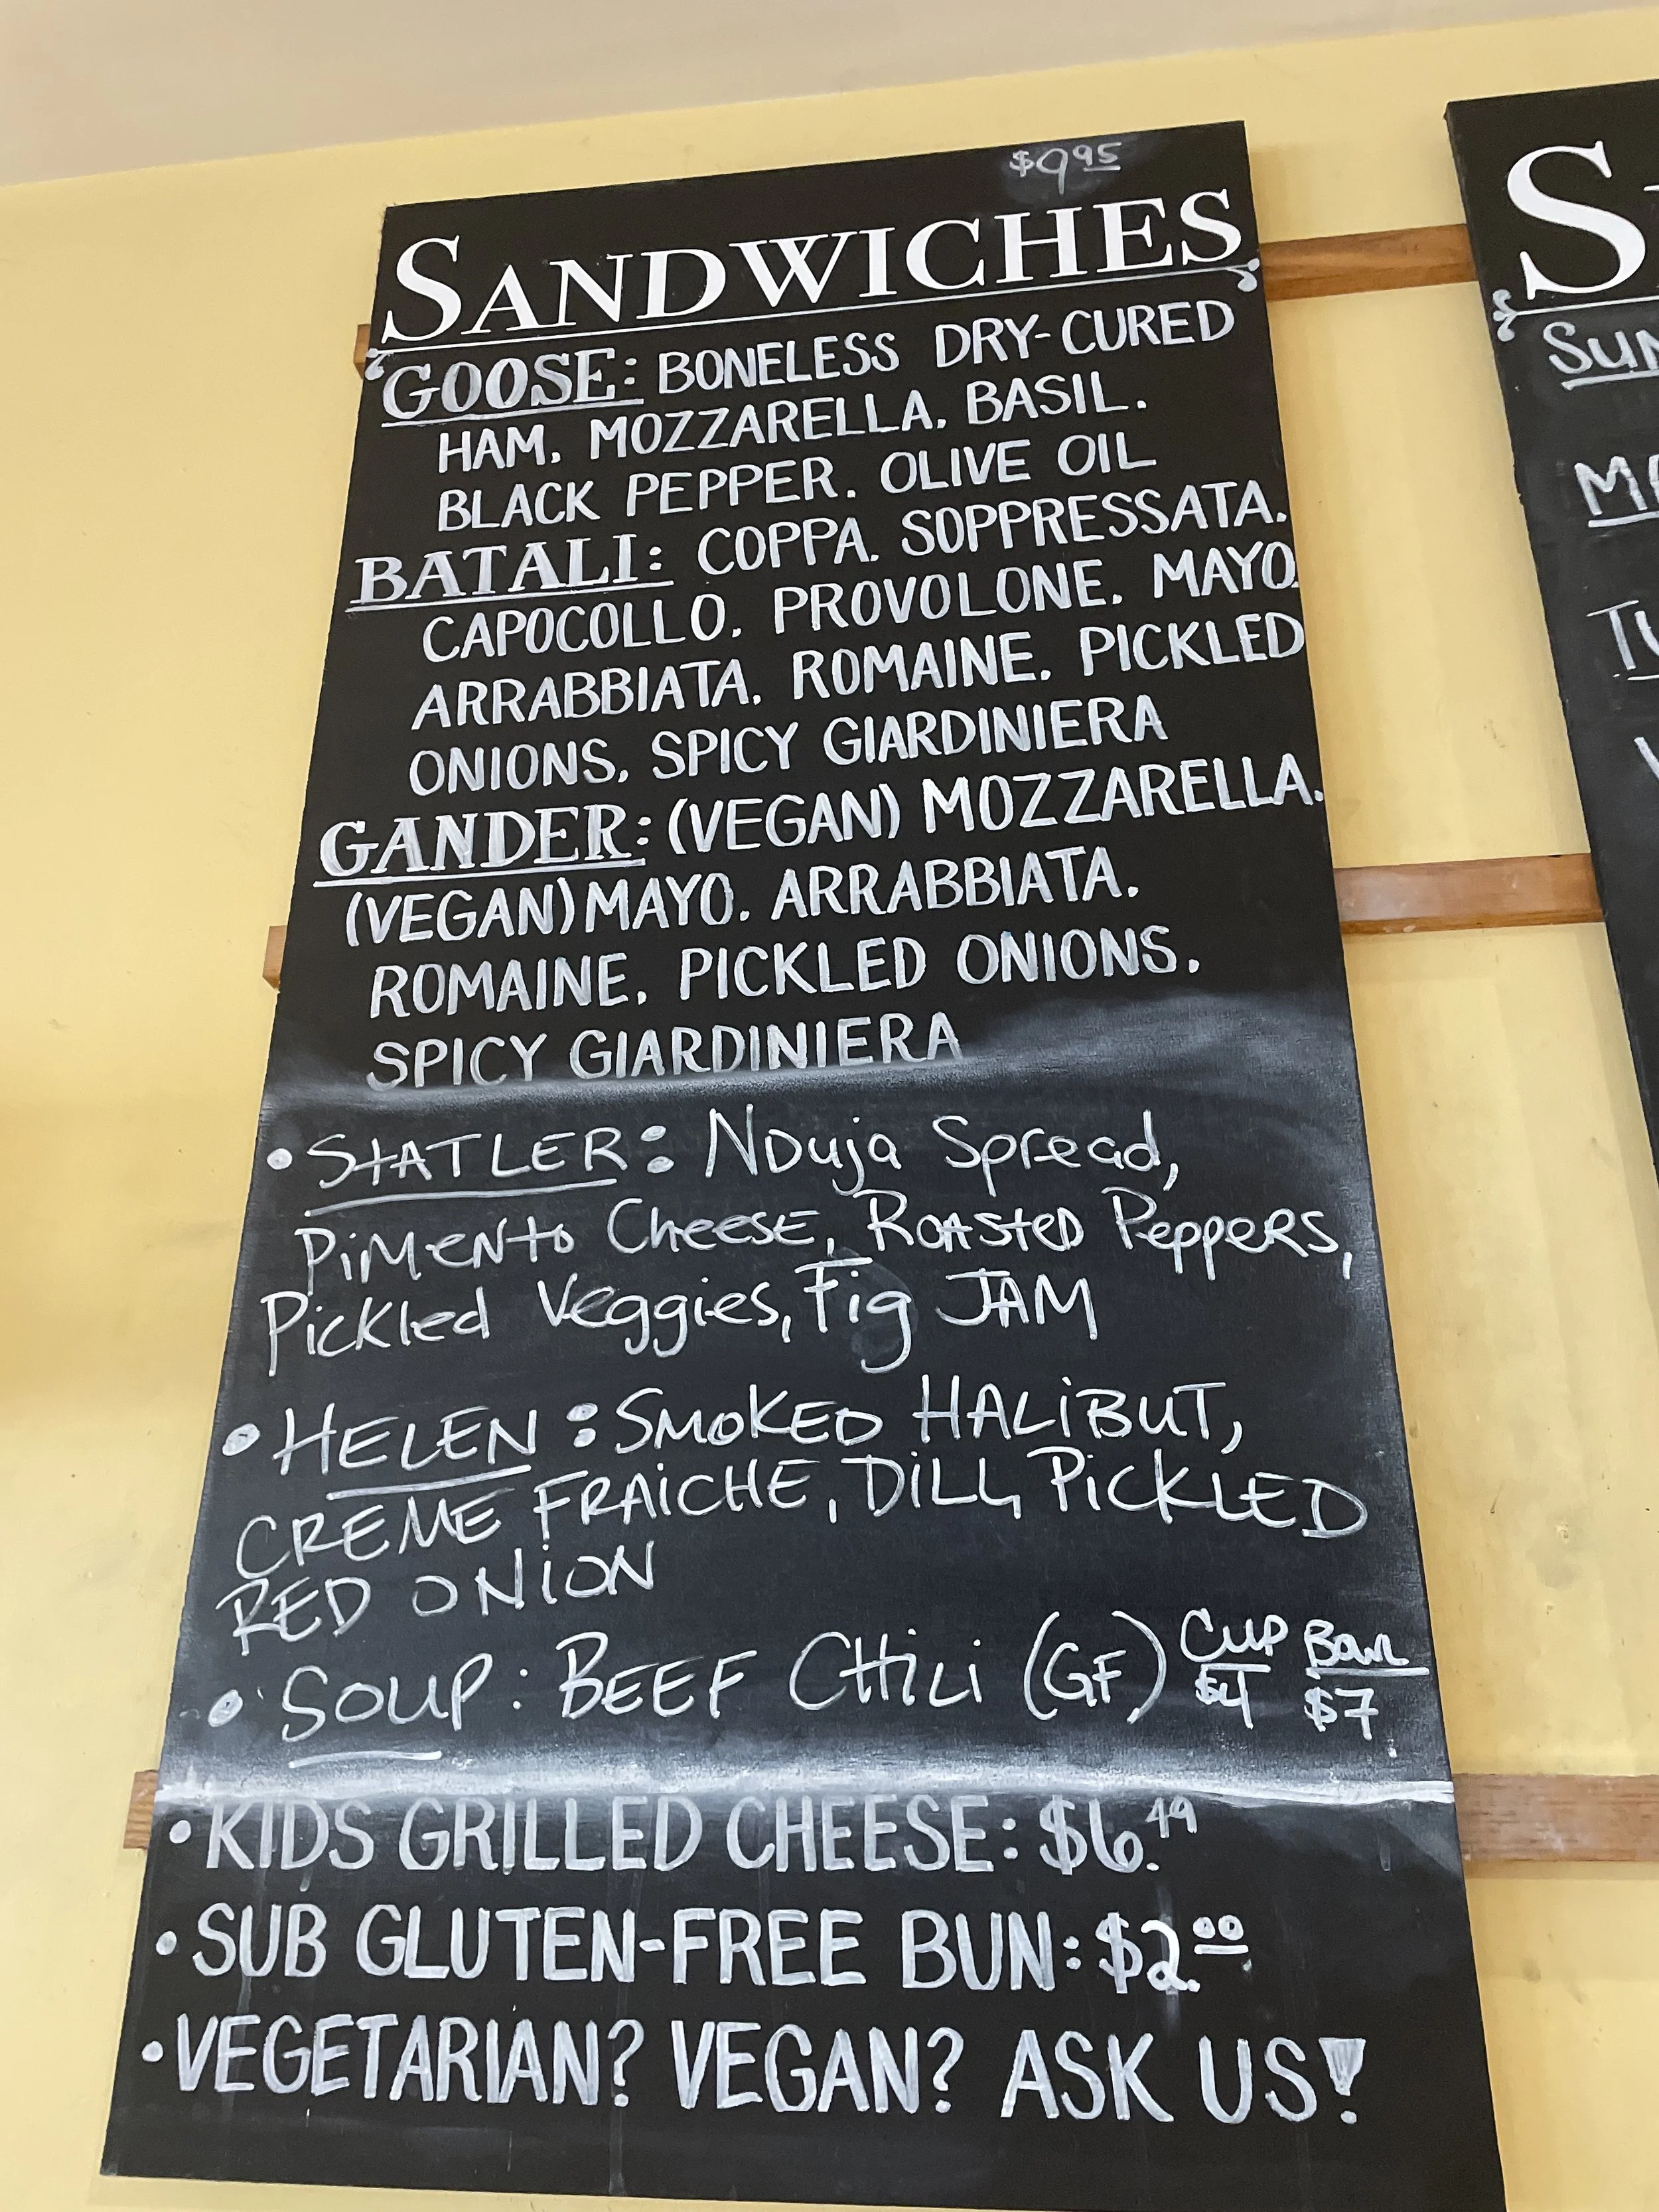 $9.95
SANDWICHES
GOOSE: BONELESS DRY-CURED
HAM. MOZZARELLA. BASIL.
BLACK PEPPER. OLIVE OIL
BATALI: COPPA. SOPPRESSATA.
CAPOCOLLO. PROVOLONE. MAYO.
ARRABBIATA. ROMAINE. PICKLED
ONIONS. SPICY GIARDINIERA
GANDER: (VEGAN) MOZZARELLA.
(VEGAN) MAYO. ARRABBIATA.
ROMAINE. PICKLED ONIONS.
SPICY GIARDINIERA
• STATLER: NDuja Spread,
PiMENto CheesE, RoAsteD PeppeRs,
Pickled Veggies, Fig JAM
• HELEN: SMOKED HALiBUT,
CREME FRAiCHE, DiLL, PiCKLED
RED ONiON
• SOUP: BEEF CHiLi (GF) CUP Bowl
$4 $7
• KIDS GRILLED CHEESE: $6.49
• SUB GLUTEN-FREE BUN: $2.00
• VEGETARIAN? VEGAN? ASK US!
S
SUN
MA
TU